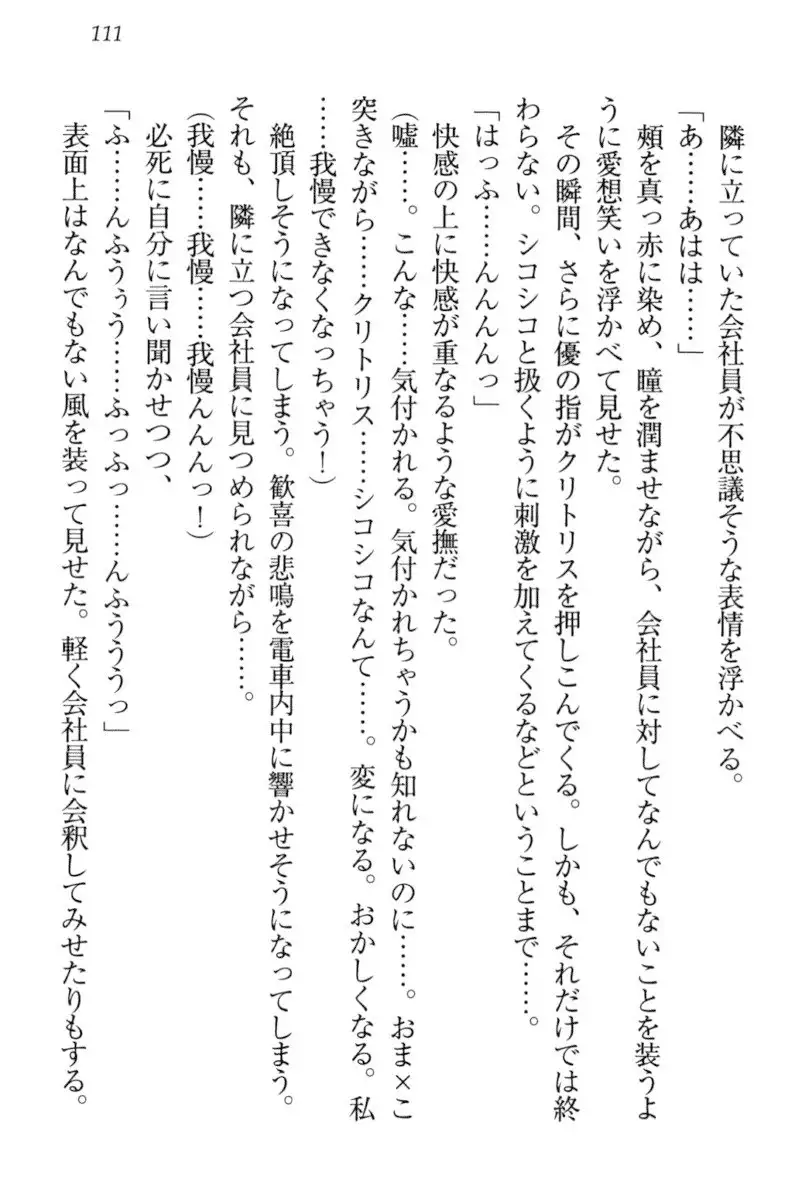 111
隣に立っていた会社員が不思議そうな表情を浮かべる。
「あ……あはは……」
頬を真っ赤に染め、瞳を潤ませながら、会社員に対してなんでもないことを装うよ
うに愛想笑いを浮かべて見せた。
その瞬間、さらに優の指がクリトリスを押しこんでくる。しかも、それだけでは終
わらない。シコシコと扱くように刺激を加えてくるなどということまで……。
「はっふ……んんんんっ」
快感の上に快感が重なるような愛撫だった。
(嘘……。こんな……気付かれる。気付かれちゃうかも知れないのに……。おま×こ
突きながら……クリトリス……シコシコなんて……。変になる。おかしくなる。私
……我慢できなくなっちゃう!)
絶頂しそうになってしまう。歓喜の悲鳴を電車内中に響かせそうになってしまう。
それも、隣に立つ会社員に見つめられながら……。
(我慢……我慢……我慢んんんっ!)
必死に自分に言い聞かせつつ、
「ふ……んふうぅう……ふっふっ……んふうううっ」
表面上はなんでもない風を装って見せた。軽く会社員に会釈してみせたりもする。